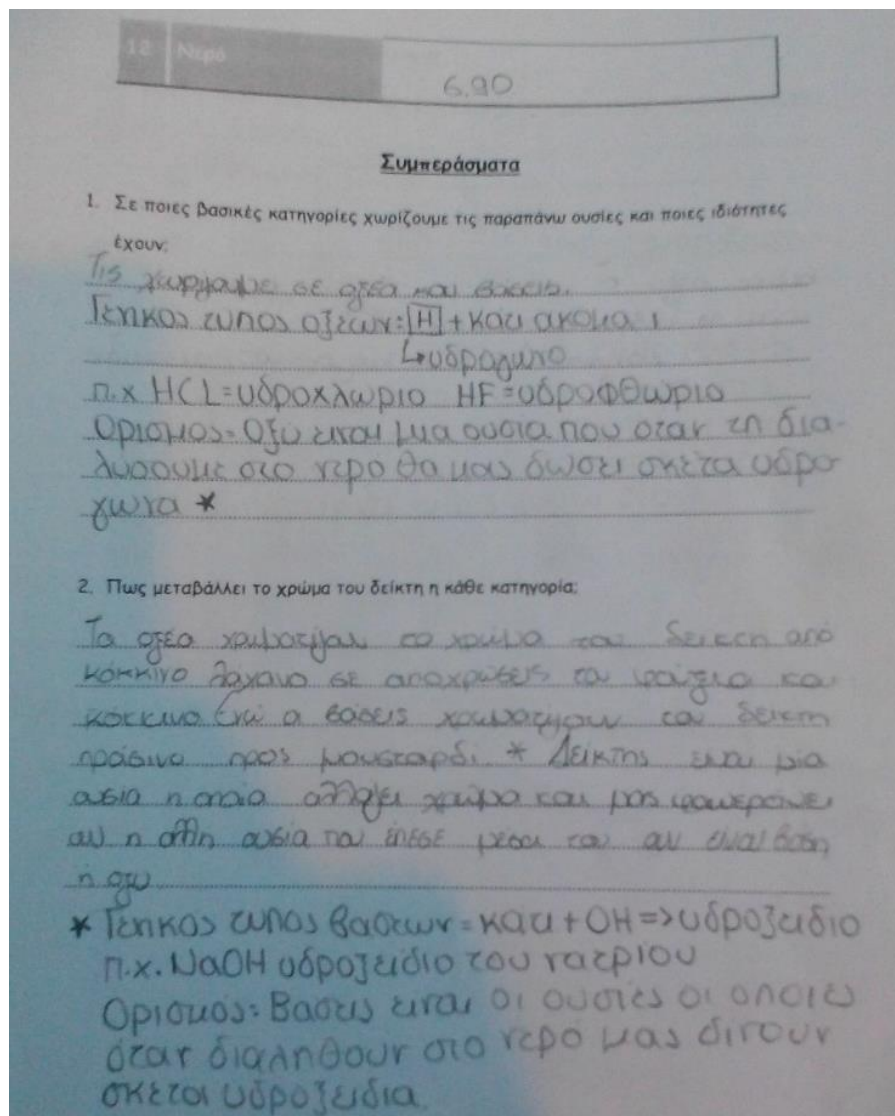 12 Νερό 6.90
Συμπεράσματα
1. Σε ποιες βασικές κατηγορίες χωρίζουμε τις παραπάνω ουσίες και ποιες ιδιότητες
έχουν;
Τις χωρίζουμε σε οξέα και βάσεις.
Γενικος τυπος οξεων: H + κατι ακομα
↳υδρογονο
π.χ HCL=υδροχλωριο HF=υδροφθωριο
Ορισμος= Οξυ ειναι μια ουσια που οταν τη δια-
λυσουμε στο νερο θα μας δωσει σκετα υδρο-
γωνα *
2. Πως μεταβάλλει το χρώμα του δείκτη η κάθε κατηγορία;
Τα οξέα χρωματίζουν το χρώμα του δεικτη από
κόκκινο λάχανο σε αποχρώσεις του φούξια και
κόκκινο ενώ οι βάσεις χρωματίζουν τον δεικτη
πράσινο προς μουσταρδί. * Δείκτης ειναι μία
ουσια η οποία αλλάζει χρώμα και μας φανερώνει
αν η άλλη ουσία που έπεσε μέσα του αν είναι βάση
ή οξυ
* Γενικος τυπος βασεων = κατι + OH => υδροξειδιο
π.χ. NaOH υδροξειδιο του νατριου
Ορισμός: Βασεις ειναι οι ουσιες οι οποιες
όταν διαληθουν στο νερό μας δινουν
σκέτα υδροξειδια.